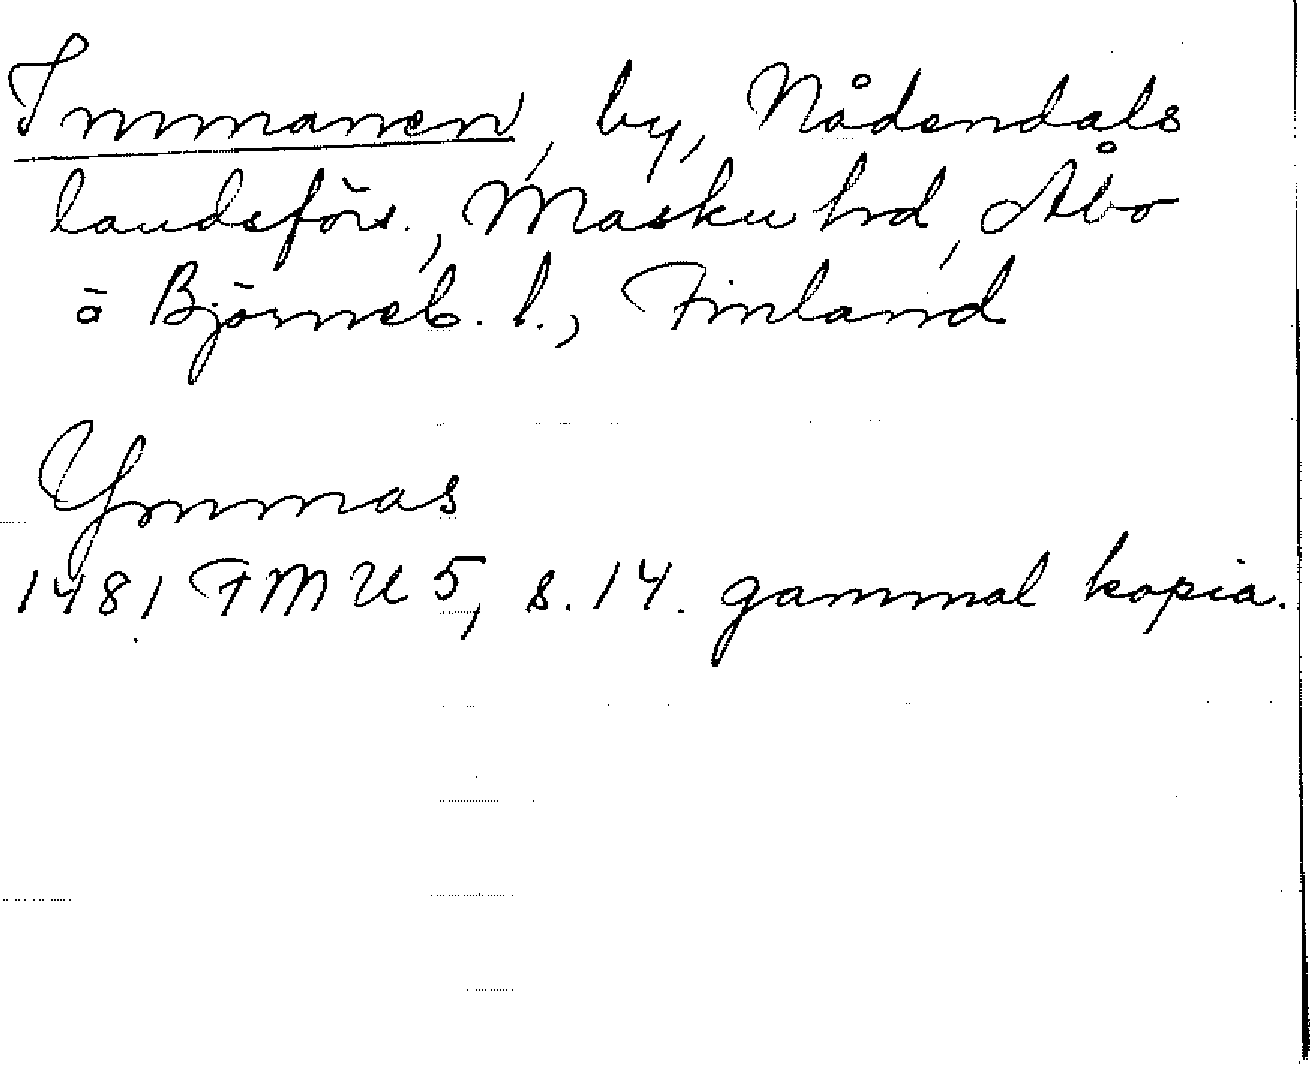 Immanen, by, Nådendals
landsförs., Masku hd, Åbo
o Björneb. l., Finland
Ymmas
1481 FMU 5, s. 14. gammal kopia.